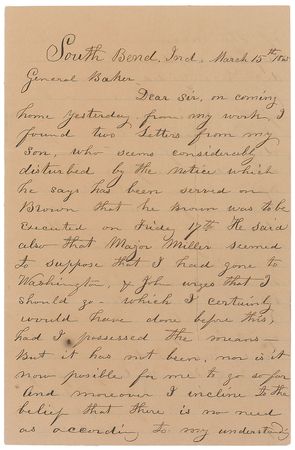 South Bend, Ind, March 15th 1865
General Baker
Dear Sir, on coming
home yesterday from my work, I
found two Letters from my
Son, who seems considerably
disturbed by the Notice which
he says has been served on
Brown that he Brown was to be
Executed on Friday 17th He said
also that Major Miller seemed
to suppose that I had gone to
Washington, & John urges that I
should go - which I certainly
would have done before this,
had I possessed the means -
But it has not been, nor is it
now posible for me to go so far
And moreover I incline to the
belief that there is no need
as according to my understanding